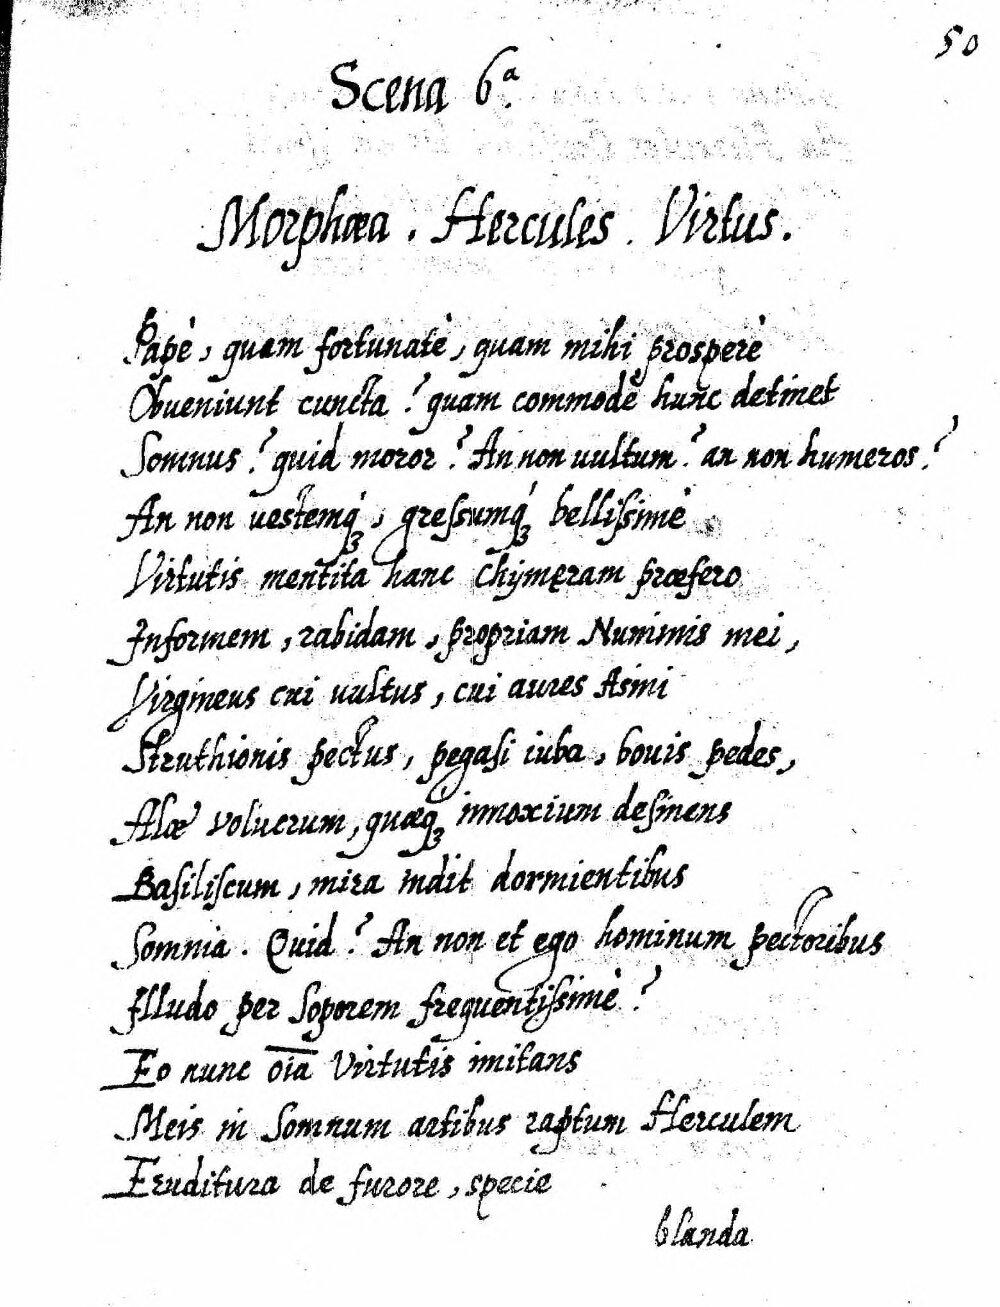 50
Scena 6ª.
Morphæa. Hercules. Virtus.
Papè, quam fortunatè, quam mihi prosperè
Obueniunt cuncta? quam commodè hunc detinet
Somnus? quid moror? An non uultum? an non humeros?
An non uestemq́ꝫ, gressumq́ꝫ bellissimè
Virtutis mentita hanc Chymęram præfero
Informem, rabidam, propriam Numinis mei,
Virgineus cui uultus, cui aures Asini
Struthionis pectus, pegasi iuba, bouis pedes,
Alæ volucrum, quæqꝫ innoxium desinens
Basiliscum, mira indit dormientibus
Somnia. Quid? An non et ego hominum pectoribus
Illudo per soporem frequentissimè?
Eo nunc oīa Virtutis imitans
Meis in somnum artibus raptum Herculem
Eruditura de furore, specie
blanda